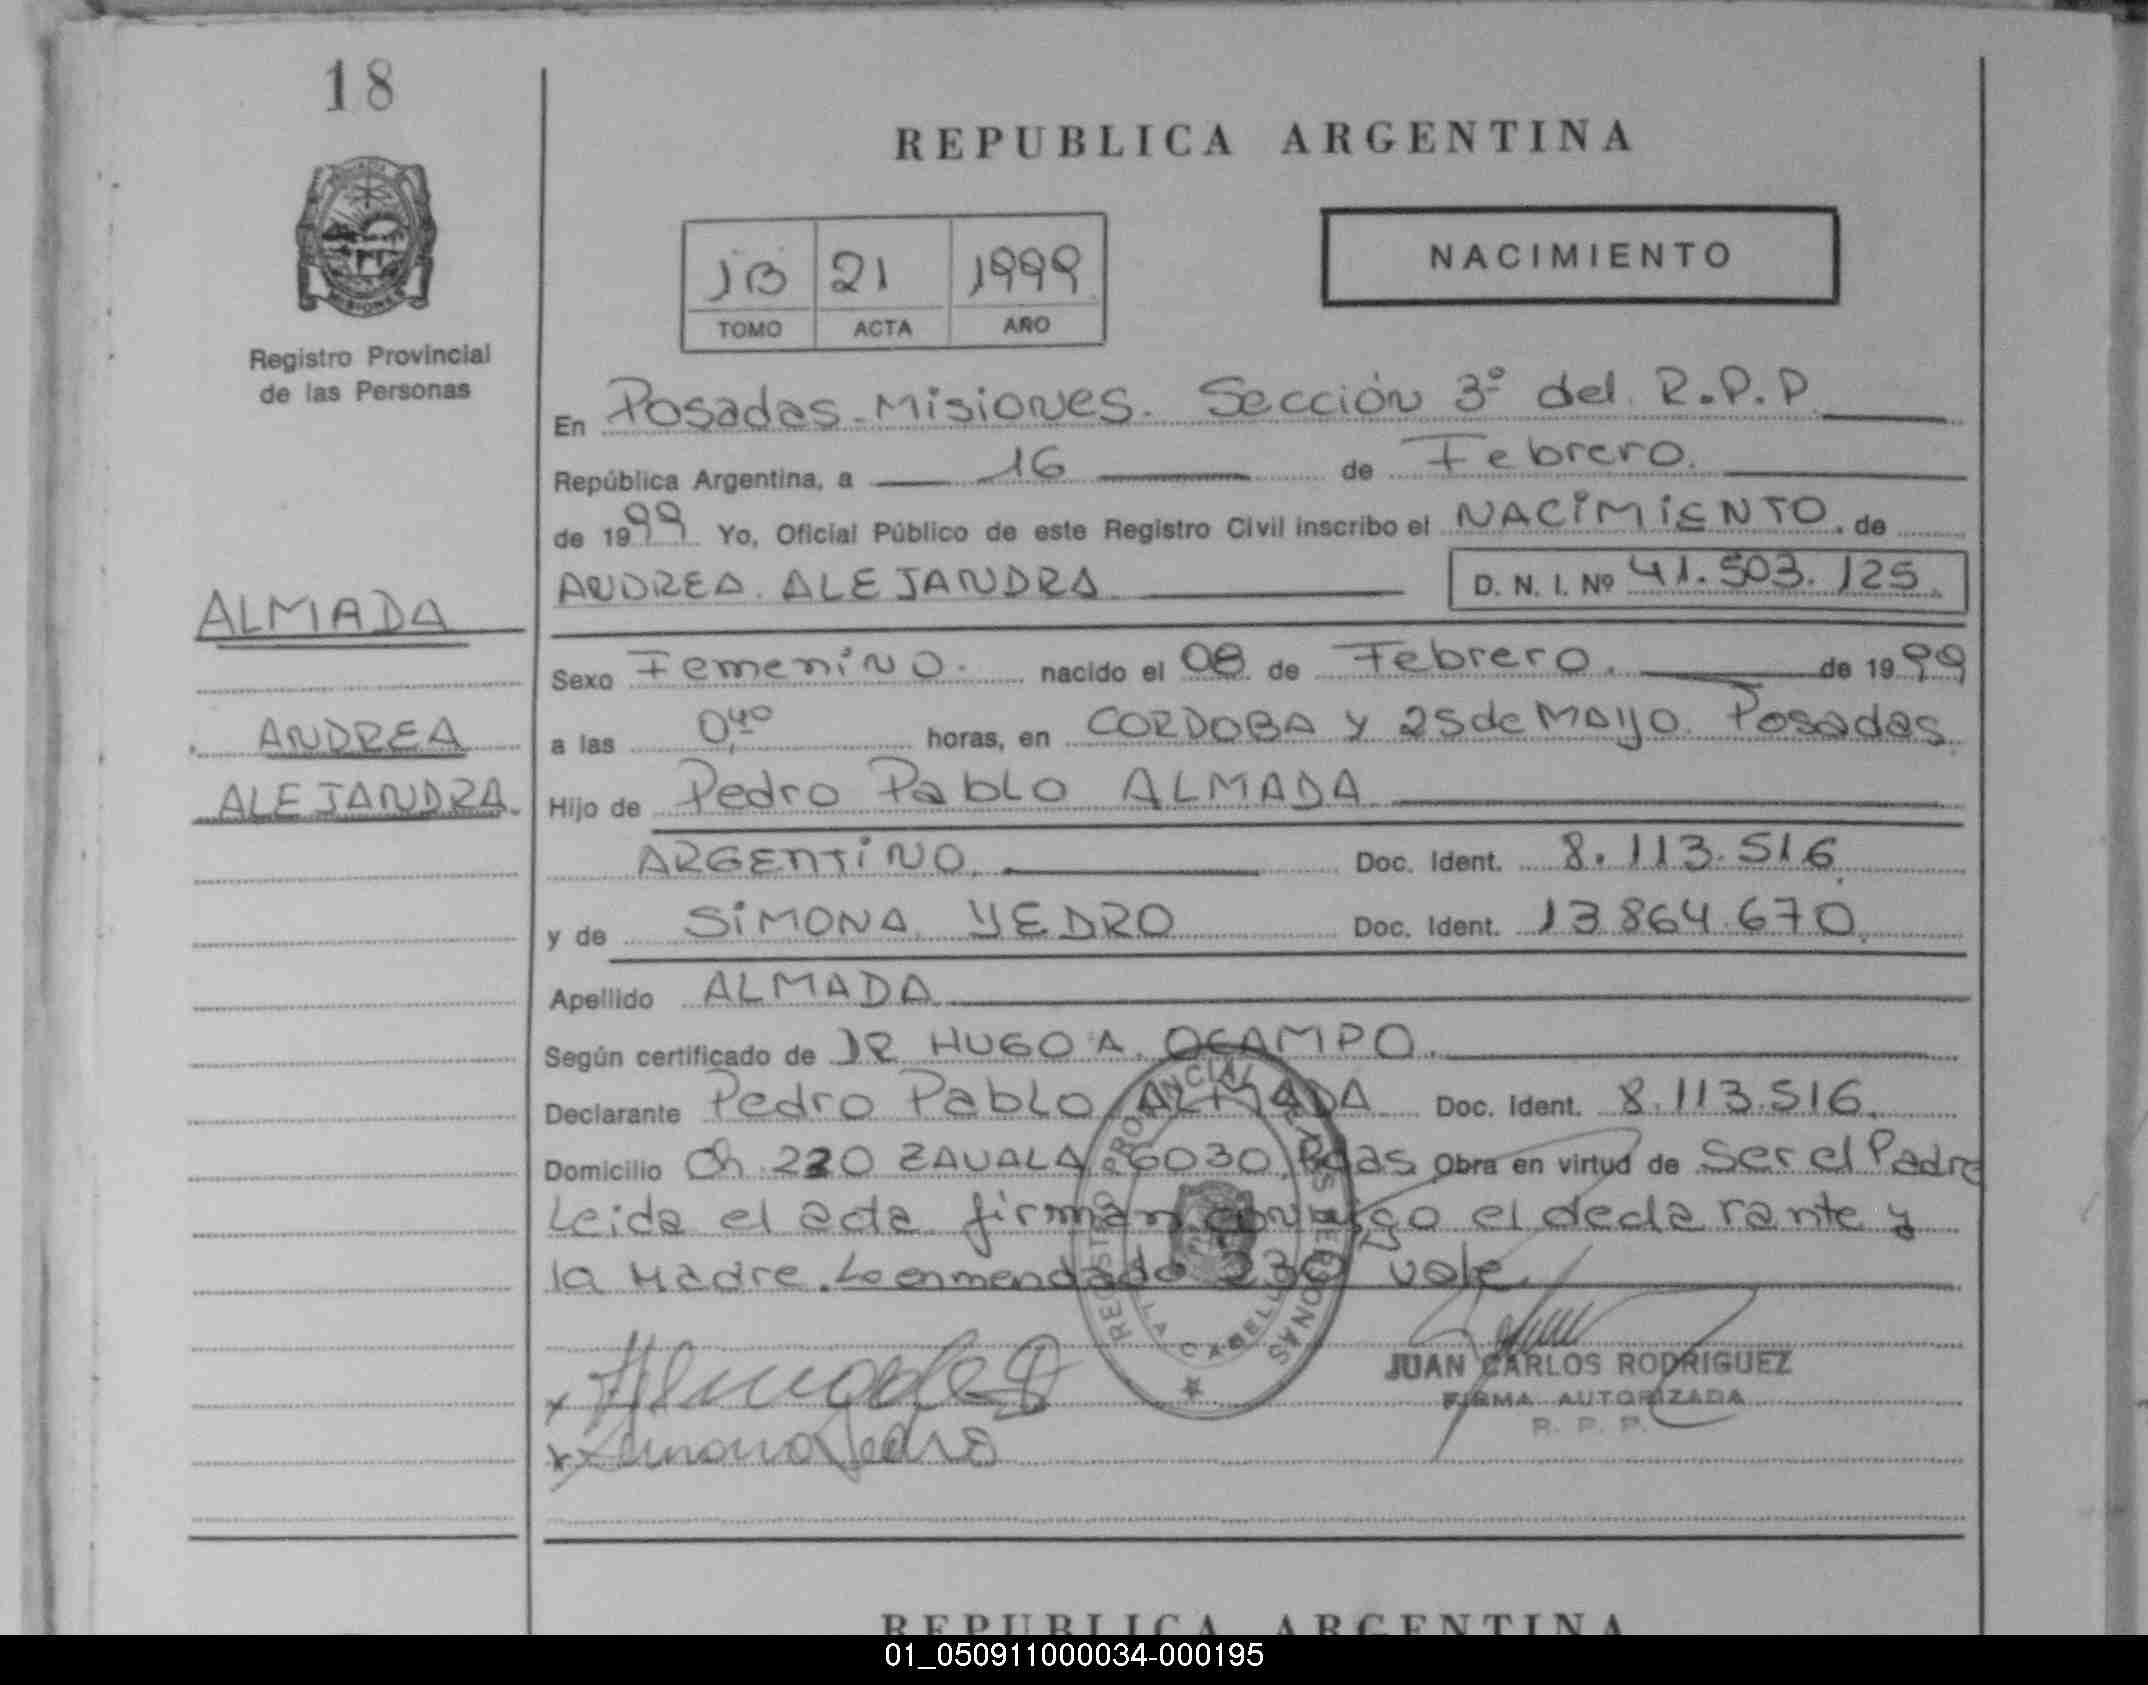 18
REPUBLICA ARGENTINA
1B 21 1999
TOMO ACTA AÑO
NACIMIENTO
Registro Provincial
de las Personas
En Posadas-Misiones. Sección 3º del R.P.P
República Argentina, a 16 de Febrero.
de 1999 Yo, Oficial Público de este Registro Civil inscribo el NACIMIENTO. de
ANDREA ALEJANDRA D. N. I. Nº 41.503.125.
ALMADA
ANDREA
ALEJANDRA.
Sexo Femenino. nacido el 08 de Febrero. de 1999
a las 0,40 horas, en CORDOBA y 25 de MAYO. Posadas
Hijo de Pedro Pablo ALMADA
ARGENTINO. Doc. Ident. 8.113.516
y de SIMONA YEDRO Doc. Ident. 13.864.670.
Apellido ALMADA
Según certificado de HUGO A. OCAMPO.
Declarante Pedro Pablo ALMADA Doc. Ident. 8.113.516.
Domicilio Ch. 220 ZAVALA 6030, Pdas Obra en virtud de Ser el Padre
Leida el acta firman conmigo el declarante y
la Madre. Lo enmendado 230 vale.
REGISTRO PROVINCIAL DE LAS PERSONAS
JUAN CARLOS RODRIGUEZ
FIRMA AUTORIZADA
R. P. P.
Almada P
Simona Yedro
REPUBLICA ARGENTINA
01_050911000034-000195